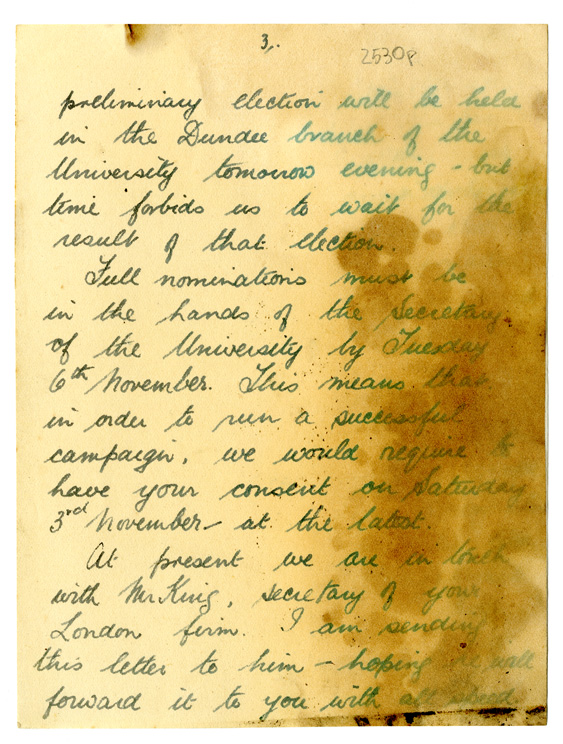 3.
2530P
preliminary election will be held
in the Dundee branch of the
University tomorrow evening - but
time forbids us to wait for the
result of that election.
Full nominations must be
in the hands of the Secretary
of the University by Tuesday
6th November. This means that
in order to run a successful
campaign, we would require to
have your consent on Saturday
3rd November - at the latest.
At present we are in touch
with Mr. King, secretary of your
London firm. I am sending
this letter to him - hoping he will
forward it to you with all speed